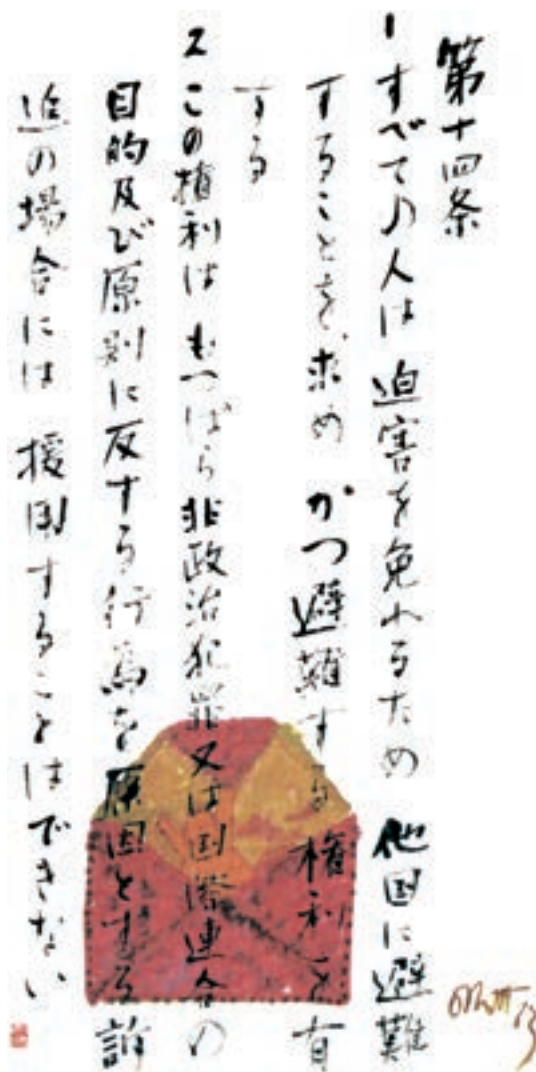 第十四条
1すべての人は 迫害を免れるため 他国に避難
することを、求め かつ避難する権利を有
する
2この権利は もっぱら非政治犯罪又は国際連合の
目的及び原則に反する行為を原因とする訴
追の場合には 援用することはできない